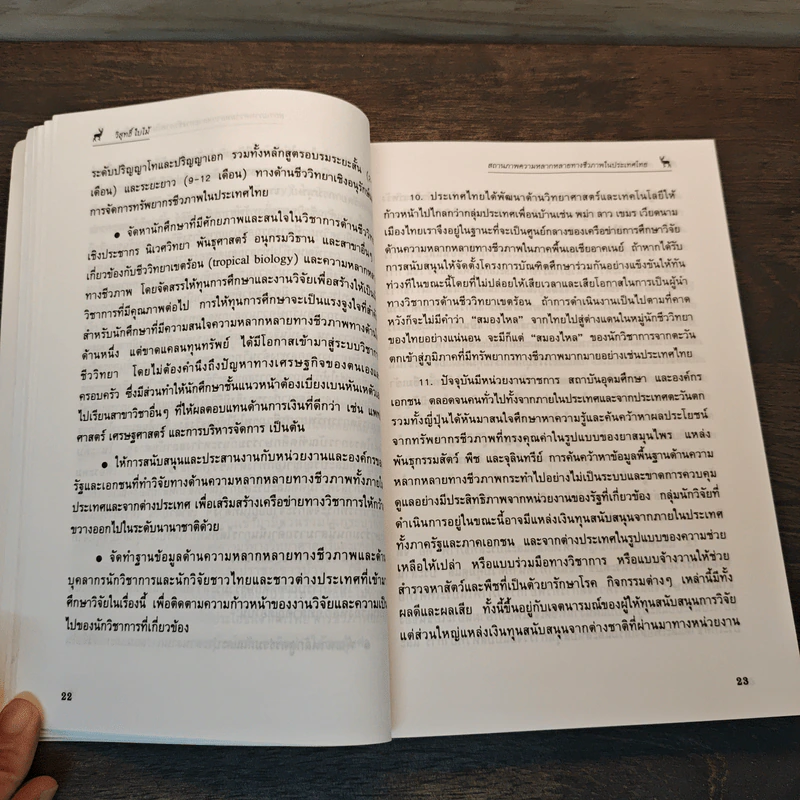 วิสุทธิ์ ใบไม้
ระดับปริญญาโทและปริญญาเอก รวมทั้งหลักสูตรอบรมระยะสั้น
เดือน) และระยะยาว (9-12 เดือน) ทางด้านชีววิทยาเชิงอนุรักษ์
การจัดการทรัพยากรชีวภาพในประเทศไทย
● จัดหานักศึกษาที่มีศักยภาพและสนใจในวิชาการด้านชีววิ
เชิงประชากร นิเวศวิทยา พันธุศาสตร์ อนุกรมวิธาน และสาขาอื่นๆ
เกี่ยวข้องกับชีววิทยาเขตร้อน (tropical biology) และความหลากหลา
ทางชีวภาพ โดยจัดสรรให้ทุนการศึกษาและงานวิจัยเพื่อสร้างให้เป็นนั
วิชาการที่มีคุณภาพต่อไป การให้ทุนการศึกษาจะเป็นแรงจูงใจที่สำคั
สำหรับนักศึกษาที่มีความสนใจความหลากหลายทางชีวภาพทางด้านใ
ด้านหนึ่ง แต่ขาดแคลนทุนทรัพย์ ได้มีโอกาสเข้ามาสู่ระบบวิชาก
ชีววิทยา โดยไม่ต้องคำนึงถึงปัญหาทางเศรษฐกิจของตนเองแล
ครอบครัว ซึ่งมีส่วนทำให้นักศึกษาชั้นแนวหน้าต้องเบี่ยงเบนหันเหตัวเอ
ไปเรียนสาขาวิชาอื่นๆ ที่ให้ผลตอบแทนด้านการเงินที่ดีกว่า เช่น แพท
ศาสตร์ เศรษฐศาสตร์ และการบริหารจัดการ เป็นต้น
● ให้การสนับสนุนและประสานงานกับหน่วยงานและองค์กรขอ
รัฐและเอกชนที่ทำวิจัยทางด้านความหลากหลายทางชีวภาพทั้งภายใ
ประเทศและจากต่างประเทศ เพื่อเสริมสร้างเครือข่ายทางวิชาการให้กว้
ขวางออกไปในระดับนานาชาติด้วย
● จัดทำฐานข้อมูลด้านความหลากหลายทางชีวภาพและด้า
บุคลากรนักวิชาการและนักวิจัยชาวไทยและชาวต่างประเทศที่เข้ามา
ศึกษาวิจัยในเรื่องนี้ เพื่อติดตามความก้าวหน้าของงานวิจัยและความเป็
ไปของนักวิชาการที่เกี่ยวข้อง
22
สถานภาพความหลากหลายทางชีวภาพในประเทศไทย
10. ประเทศไทยได้พัฒนาด้านวิทยาศาสตร์และเทคโนโลยีให้
ก้าวหน้าไปไกลกว่ากลุ่มประเทศเพื่อนบ้านเช่น พม่า ลาว เขมร เวียดนาม
เมืองไทยเราจึงอยู่ในฐานะที่จะเป็นศูนย์กลางของเครือข่ายการศึกษาวิจัย
ด้านความหลากหลายทางชีวภาพในภาคพื้นเอเชียอาคเนย์ ถ้าหากได้รับ
การสนับสนุนให้จัดตั้งโครงการบัณฑิตศึกษาร่วมกันอย่างแข็งขันให้ทัน
ท่วงทีในขณะนี้โดยที่ไม่ปล่อยให้เสียเวลาและเสียโอกาสในการเป็นผู้นำ
ทางวิชาการด้านชีววิทยาเขตร้อน ถ้าการดำเนินงานเป็นไปตามที่คาด
หวังก็จะไม่มีคำว่า “สมองไหล” จากไทยไปสู่ต่างแดนในหมู่นักชีววิทยา
ของไทยอย่างแน่นอน จะมีก็แต่ “สมองไหล” ของนักวิชาการจากตะวัน
ตกเข้าสู่ภูมิภาคที่มีทรัพยากรทางชีวภาพมากมายอย่างเช่นประเทศไทย
11. ปัจจุบันมีหน่วยงานราชการ สถาบันอุดมศึกษา และองค์กร
เอกชน ตลอดจนคนทั่วไปทั้งจากภายในประเทศและจากประเทศตะวันตก
รวมทั้งญี่ปุ่นได้หันมาสนใจศึกษาหาความรู้และค้นคว้าหาผลประโยชน์
จากทรัพยากรชีวภาพที่ทรงคุณค่าในรูปแบบของยาสมุนไพร แหล่ง
พันธุกรรมสัตว์ พืช และจุลินทรีย์ การค้นคว้าหาข้อมูลพื้นฐานด้านความ
หลากหลายทางชีวภาพกระทำไปอย่างไม่เป็นระบบและขาดการควบคุม
ดูแลอย่างมีประสิทธิภาพจากหน่วยงานของรัฐที่เกี่ยวข้อง กลุ่มนักวิจัยที่
ดำเนินการอยู่ในขณะนี้อาจมีแหล่งเงินทุนสนับสนุนจากภายในประเทศ
ทั้งภาครัฐและภาคเอกชน และจากต่างประเทศในรูปแบบของความช่วย
เหลือให้เปล่า หรือแบบร่วมมือทางวิชาการ หรือแบบจ้างวานให้ช่วย
สำรวจหาสัตว์และพืชที่เป็นตัวยารักษาโรค กิจกรรมต่างๆ เหล่านี้มีทั้ง
ผลดีและผลเสีย ทั้งนี้ขึ้นอยู่กับเจตนารมณ์ของผู้ให้ทุนสนับสนุนการวิจัย
แต่ส่วนใหญ่แหล่งเงินทุนสนับสนุนจากต่างชาติที่ผ่านมาทางหน่วยงาน
23